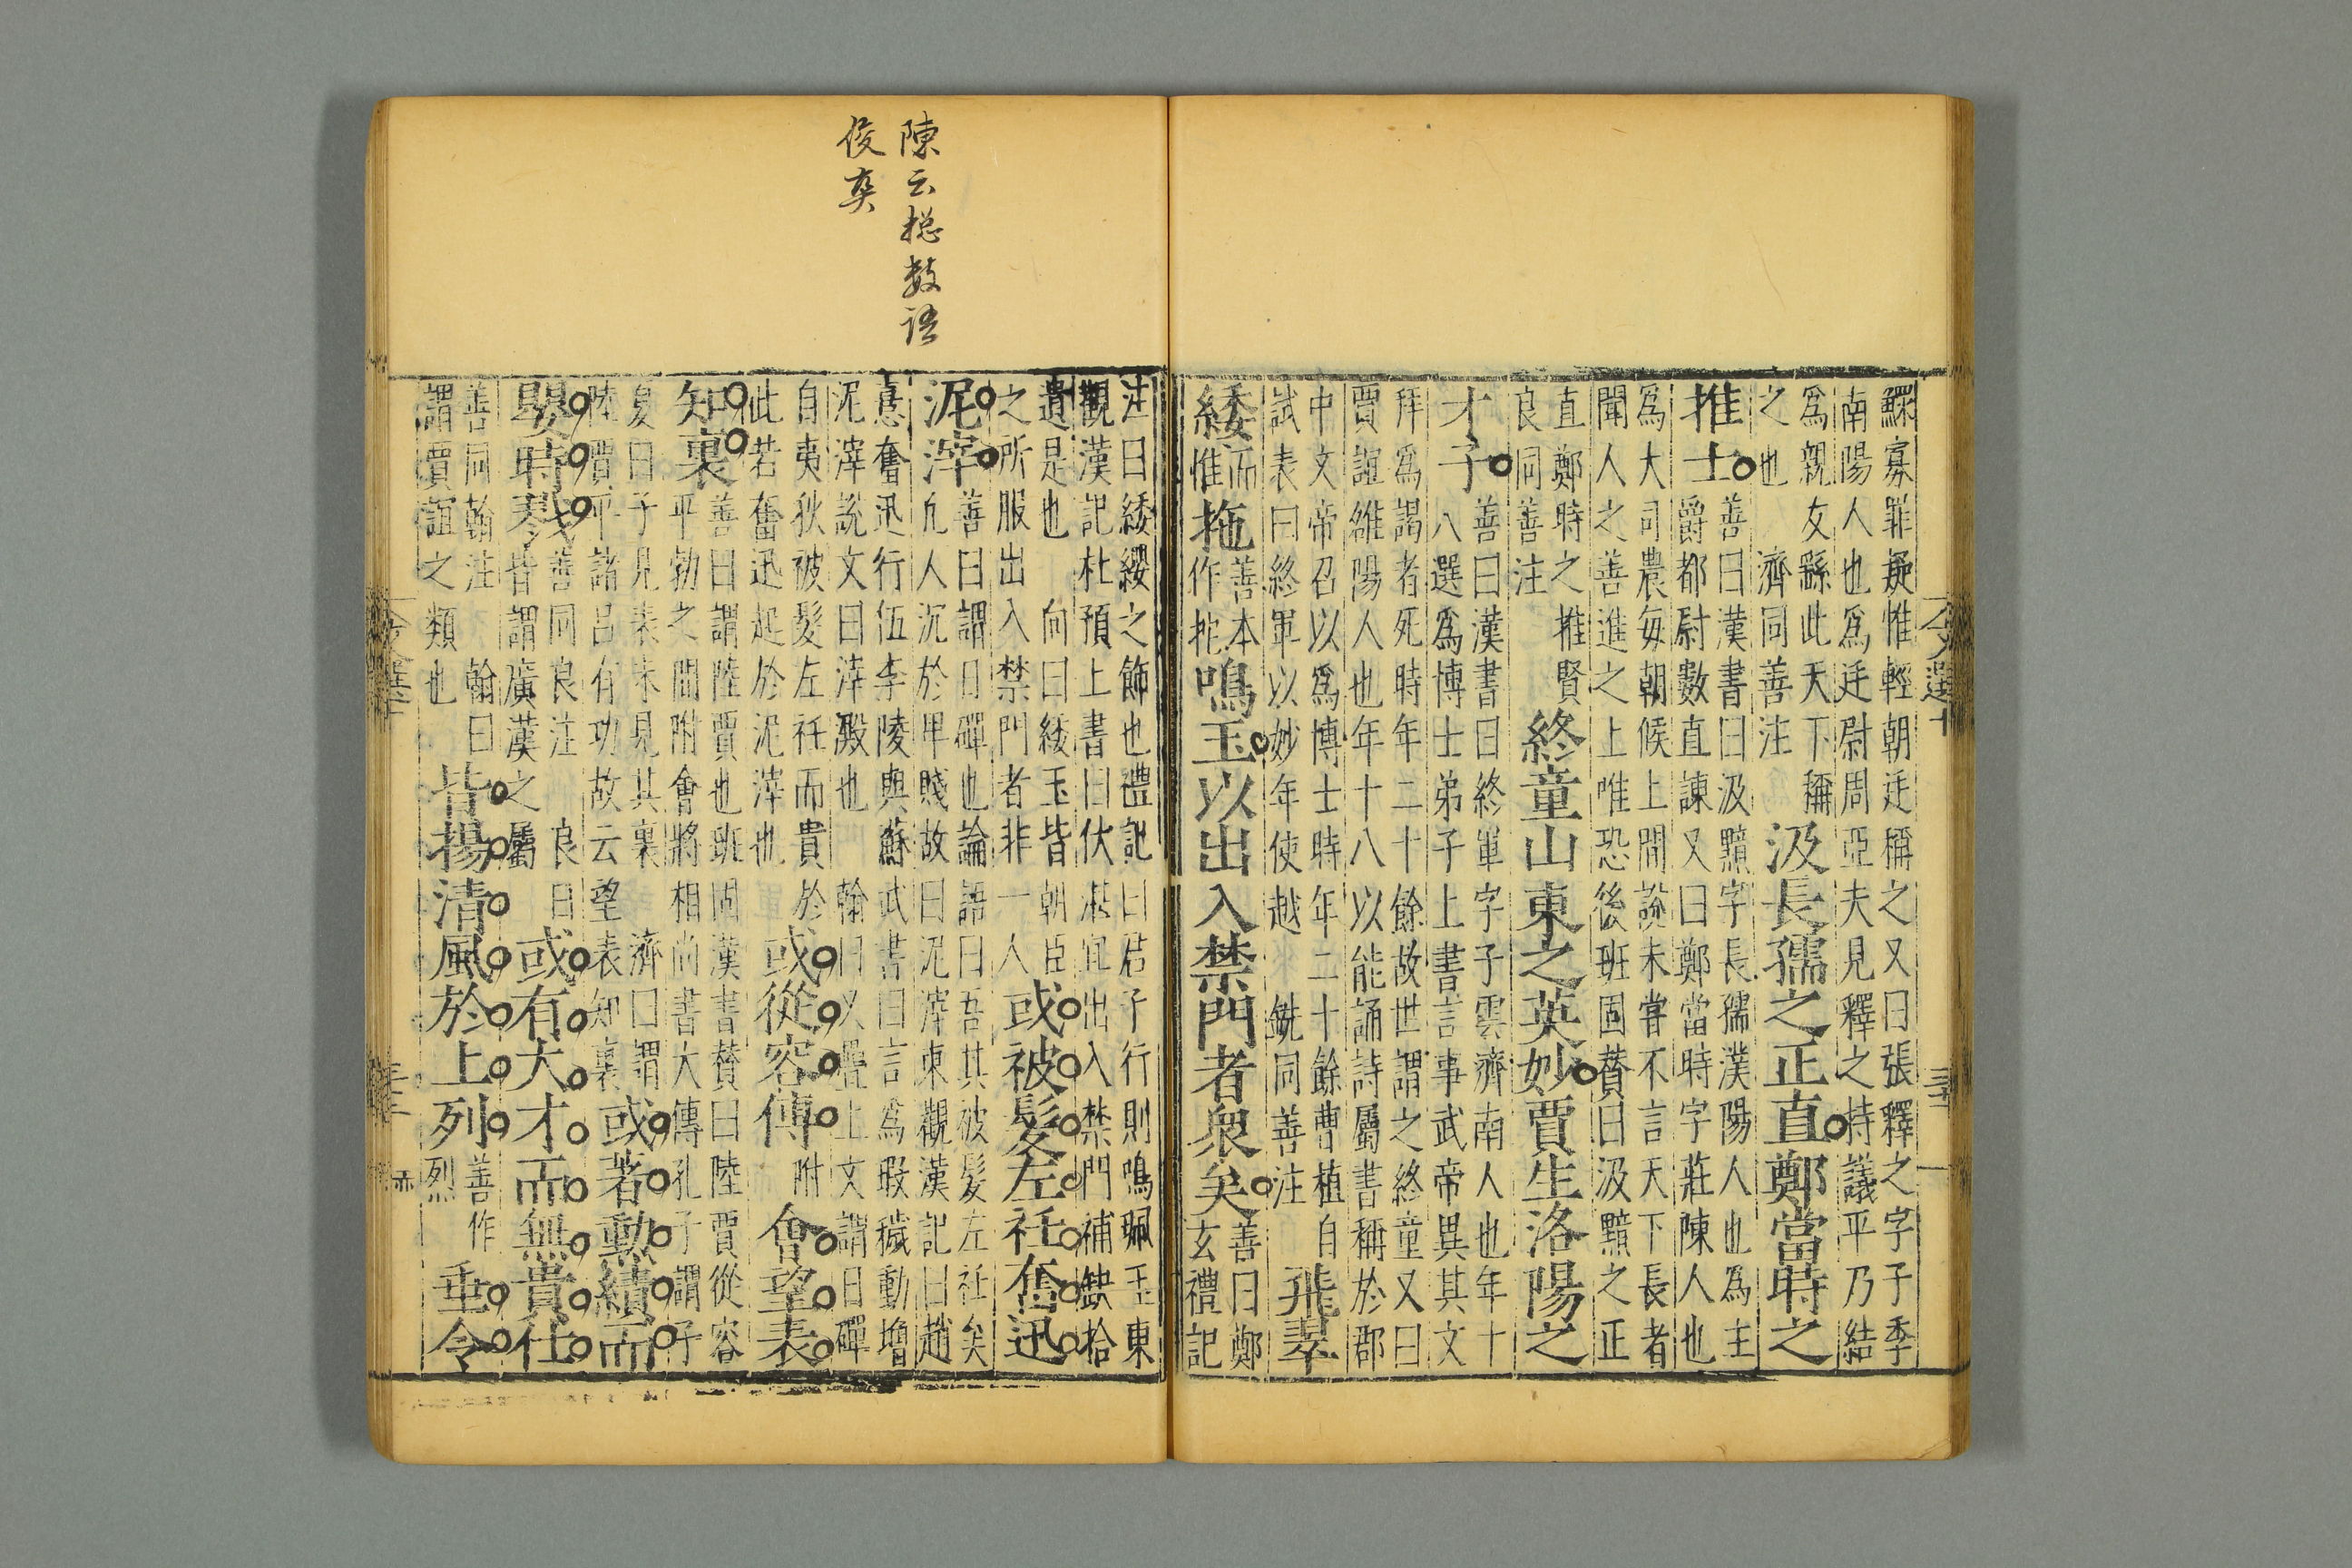 鰥寡罪疑惟輕朝廷稱之又曰張釋之字子季
南陽人也爲廷尉周亞夫見釋之持議平乃結
爲親友繇此天下稱
之也 濟同善注
汲長孺之正直鄭當時之
推士
善曰漢書曰汲黯字長孺濮陽人也爲主
爵都尉數直諫又曰鄭當時字莊陳人也
爲大司農每朝候上間說未嘗不言天下長者
聞人之善進之上唯恐後班固賛曰汲黯之正
直鄭時之推賢
良同善注
終童山東之英妙賈生洛陽之
才子
善曰漢書曰終軍字子雲濟南人也年十
八選爲博士弟子上書言事武帝異其文
拜爲謁者死時年二十餘故世謂之終童又曰
賈誼雒陽人也年十八以能誦詩屬書稱於郡
中文帝召以爲博士時年二十餘曹植自
試表曰終軍以妙年使越 銑同善注
飛翠
緌
而
惟
拖
善本
作拕
鳴玉以出入禁門者衆矣
善曰鄭
玄禮記
陳云揔數語
俊爽
注曰緌纓之飾也禮記曰君子行則鳴珮玉東
觀漢記杜預上書曰伏湛宜出入禁門補缺拾
遺是也 向曰緌玉皆朝臣
之所服出入禁門者非一人
或被髮左衽奮迅
泥滓
善曰謂日磾也論語曰吾其被髮左衽矣
凢人沉於卑賤故曰泥滓東觀漢記曰趙
憙奮迅行伍李陵與蘇武書曰言爲瑕穢動增
泥滓說文曰滓澱也 翰曰以疊上文謂日磾
自夷狄被髮左衽而貴於
此若奮迅起於泥滓也
或從容傅
附
會望表
知裏
善曰謂陸賈也班固漢書賛曰陸賈從容
平勃之間附會將相尚書大傳孔子謂子
夏曰子見表未見其裏 濟曰謂
陸賈平諸呂有功故云望表知裏
或著勳績而
嬰時戮
善同良注 良曰
皆謂廣漢之屬
或有大才而無貴仕
善同翰注 翰曰
謂賈誼之類也
皆揚清風於上列
善作
烈
垂令